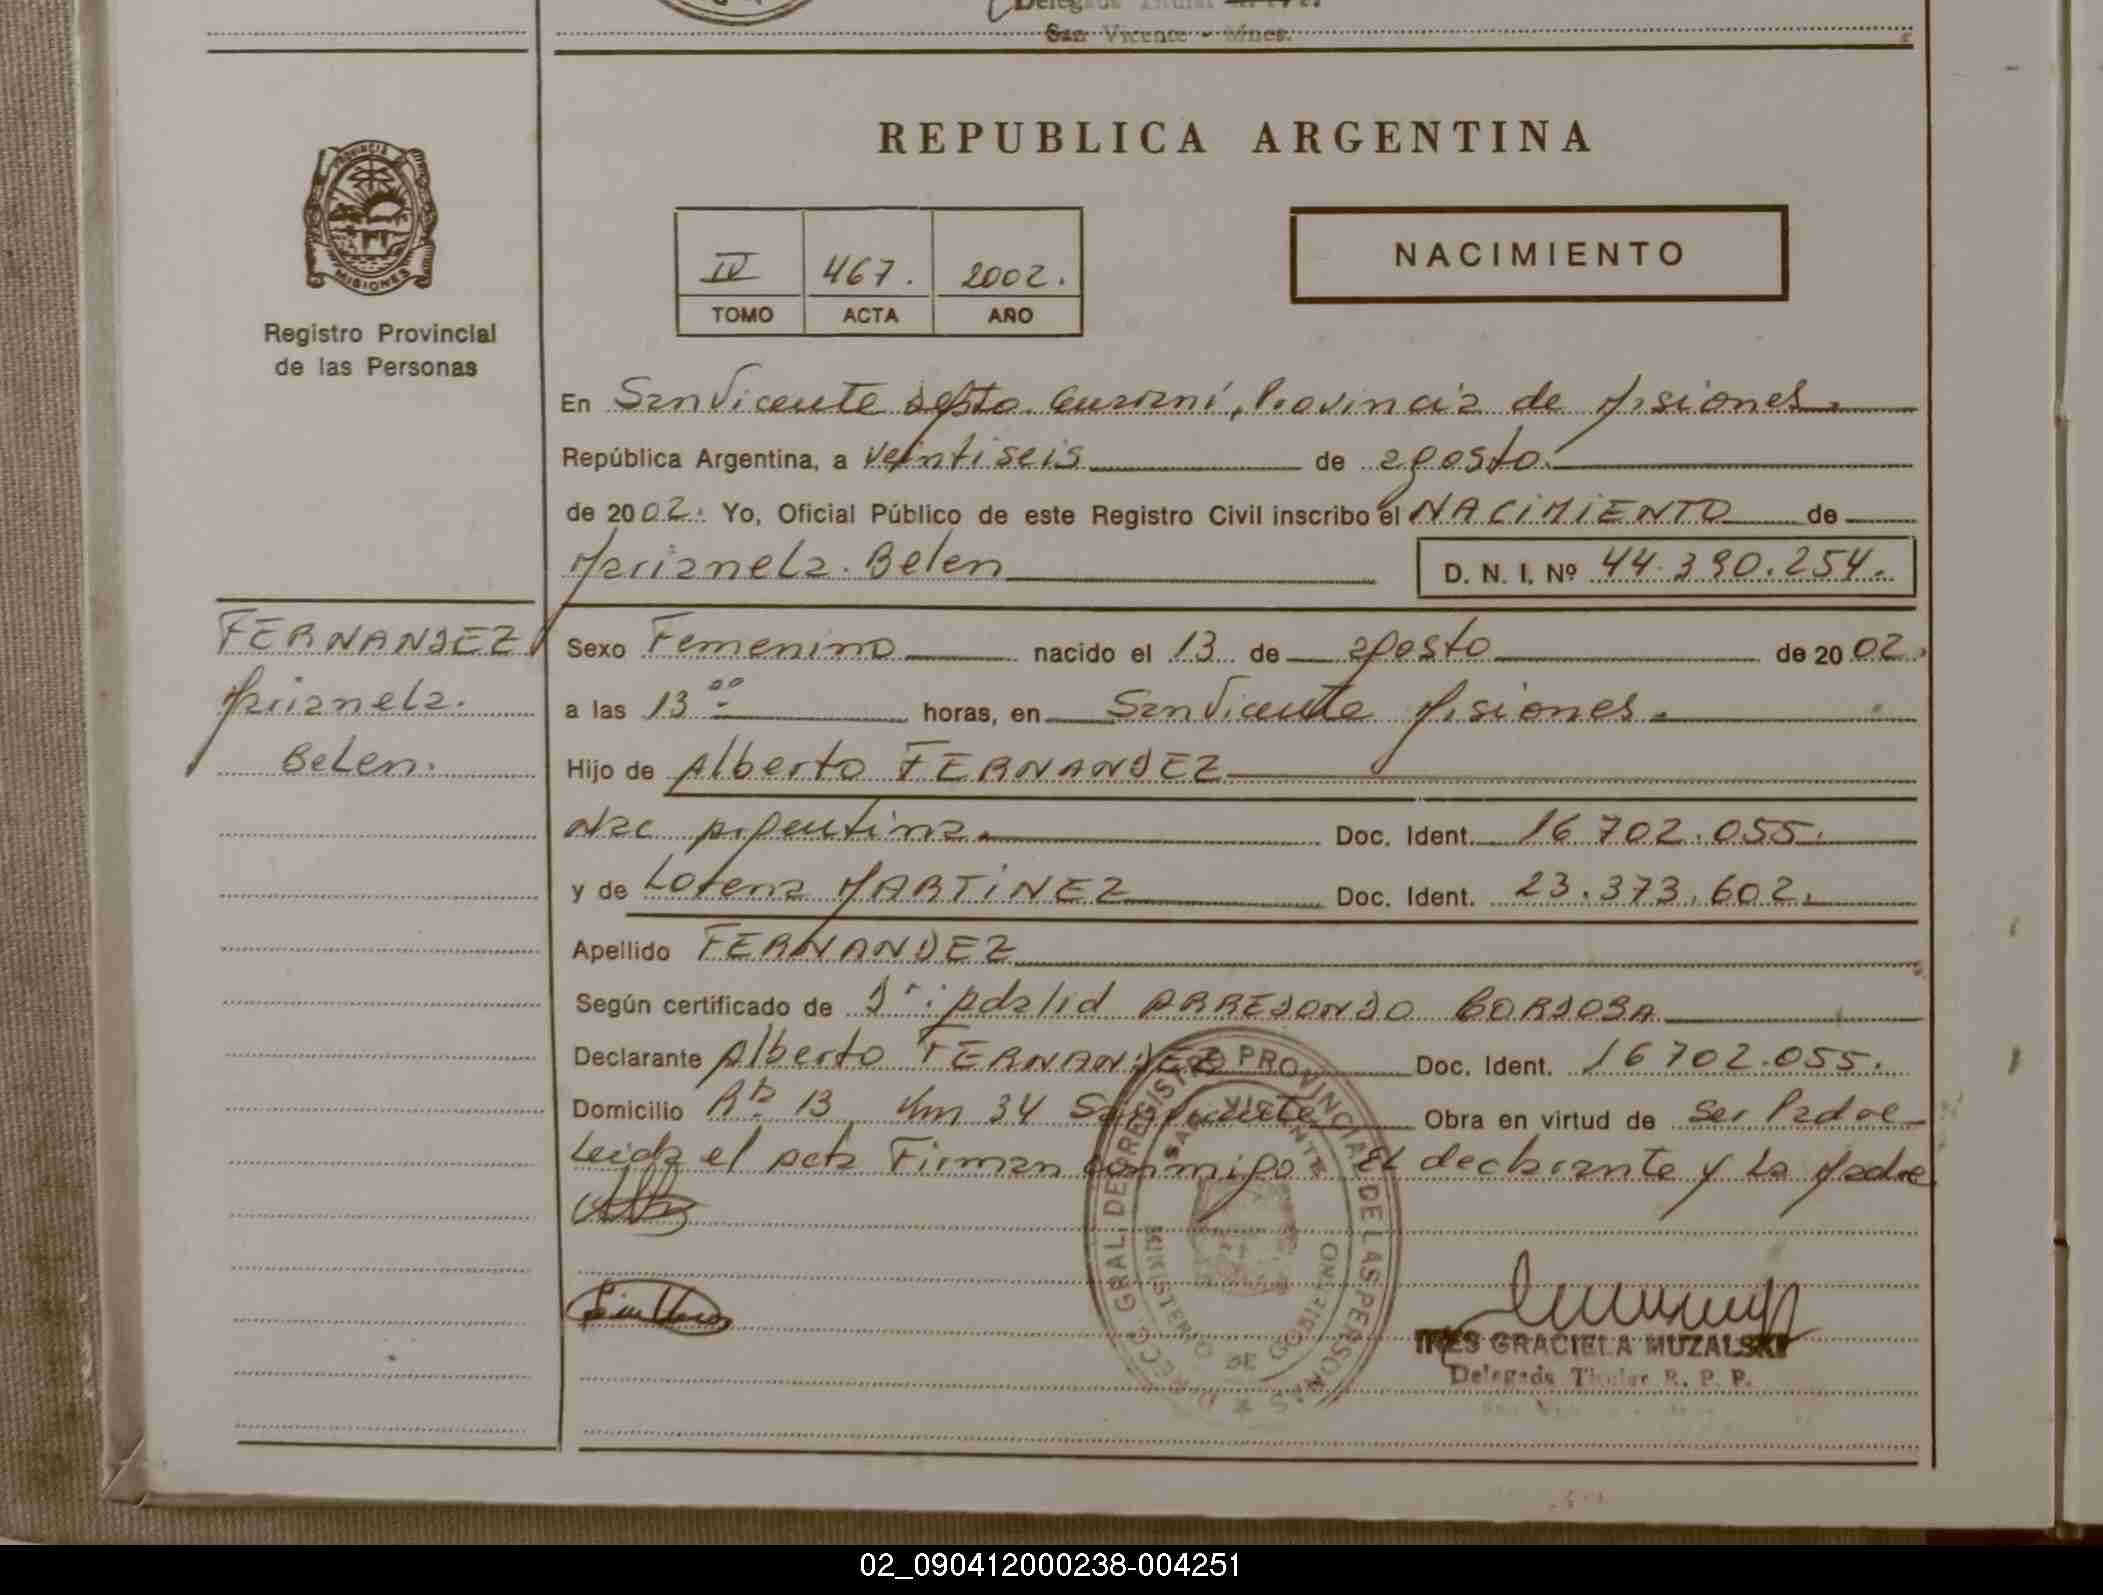 Delegada Titular R. P. P.
San Vicente - Mnes.
REPUBLICA ARGENTINA
PROVINCIA DE
MISIONES
Registro Provincial
de las Personas
IV 467. 2002.
TOMO ACTA AÑO
NACIMIENTO
En San Vicente Depto. Guaraní, Provincia de Misiones.
República Argentina, a veintiseis de agosto.
de 2002. Yo, Oficial Público de este Registro Civil inscribo el NACIMIENTO de
Marianela. Belen D. N. I. Nº 44.390.254.
FERNANDEZ
Marianela.
Belen.
Sexo Femenino nacido el 13 de agosto de 2002.
a las 13 00 horas, en San Vicente Misiones.
Hijo de Alberto FERNANDEZ
Nac Argentina. Doc. Ident. 16 702.055.
y de Lorena MARTINEZ Doc. Ident. 23.373.602.
Apellido FERNANDEZ
Según certificado de Dr. Adalid ARREDONDO BORDOBA
Declarante Alberto FERNANDEZ Doc. Ident. 16 702.055.
Domicilio Rta. 13 Km 34 San Vicente Obra en virtud de Ser Padre
Leida el acta Firman conmigo El declarante y La Madre
DIRECC. GRAL. DE REGISTRO PROVINCIAL DE LAS PERSONAS
SAN VICENTE
MINISTERIO DE GOBIERNO
IRIS GRACIELA MUZALSKI
Delegada Titular R. P. P.
02_090412000238-004251